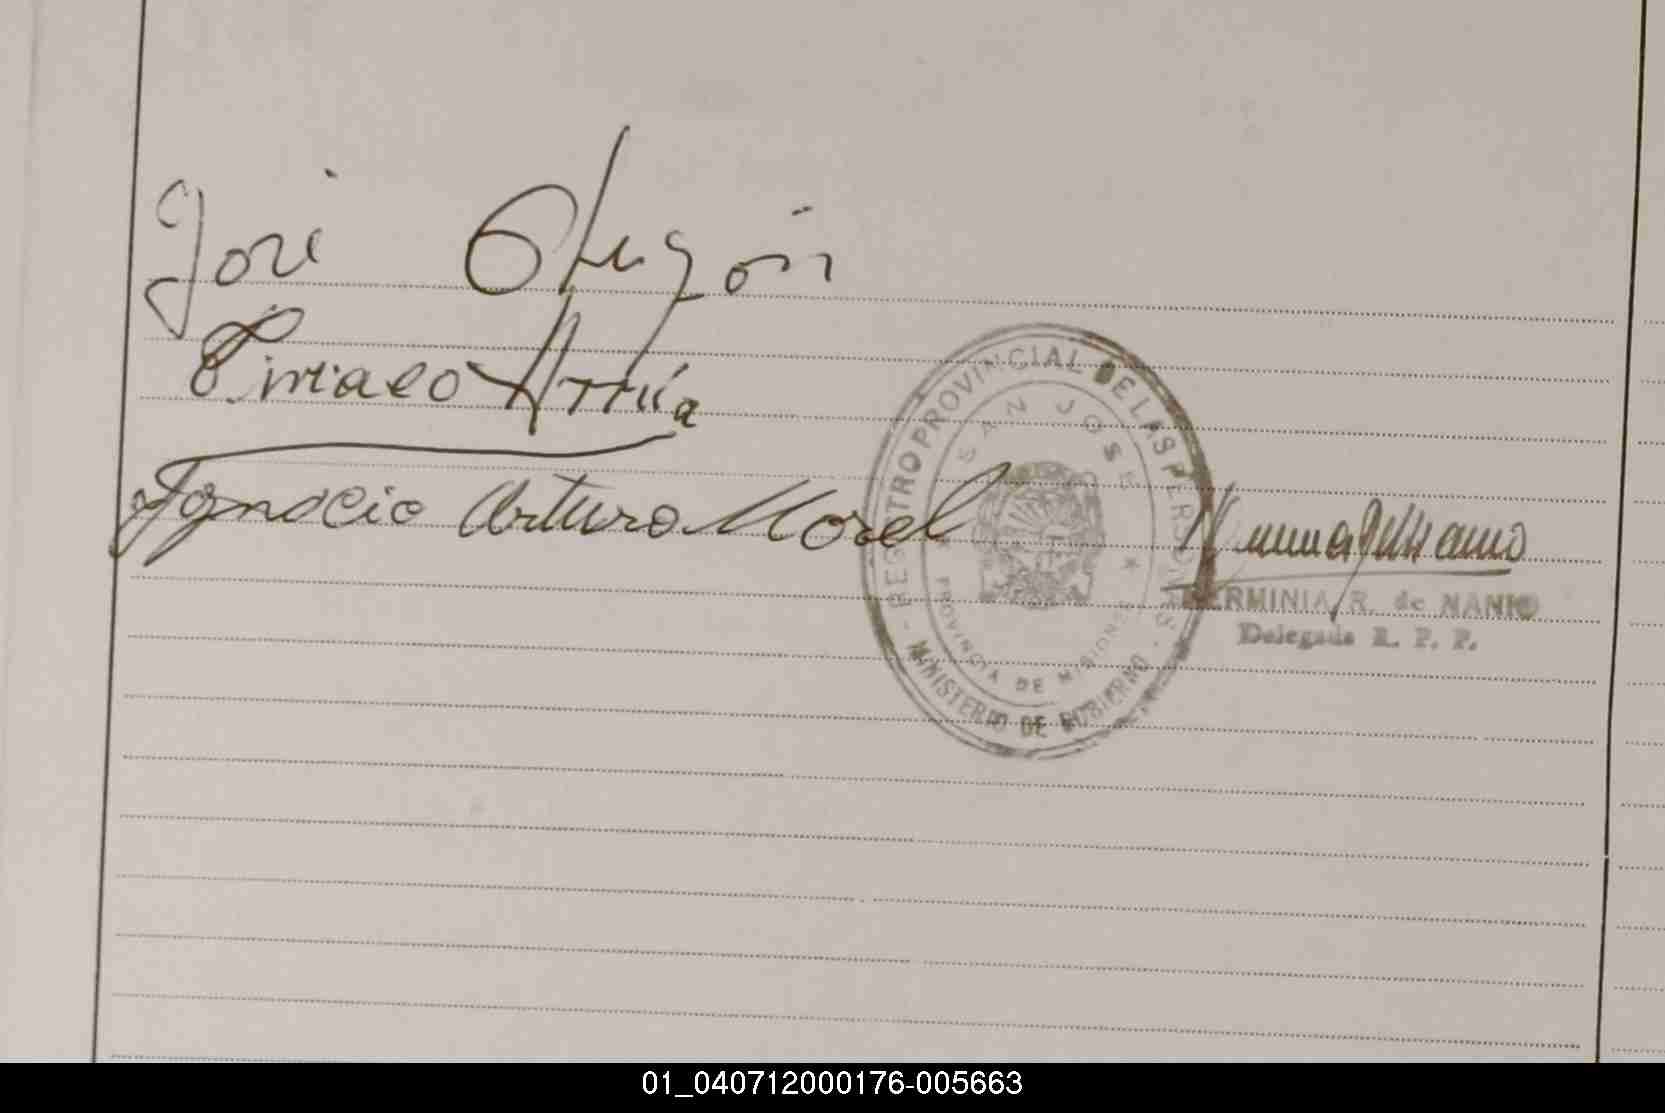 José
Arrúa
Ignacio Arturo Morel
REGISTRO PROVINCIAL DE LAS PERSONAS
SAN JOSE
PROVINCIA DE MISIONES
MINISTERIO DE GOBIERNO
HERMINIA R. de
Delegada R. P. P.
01_040712000176-005663